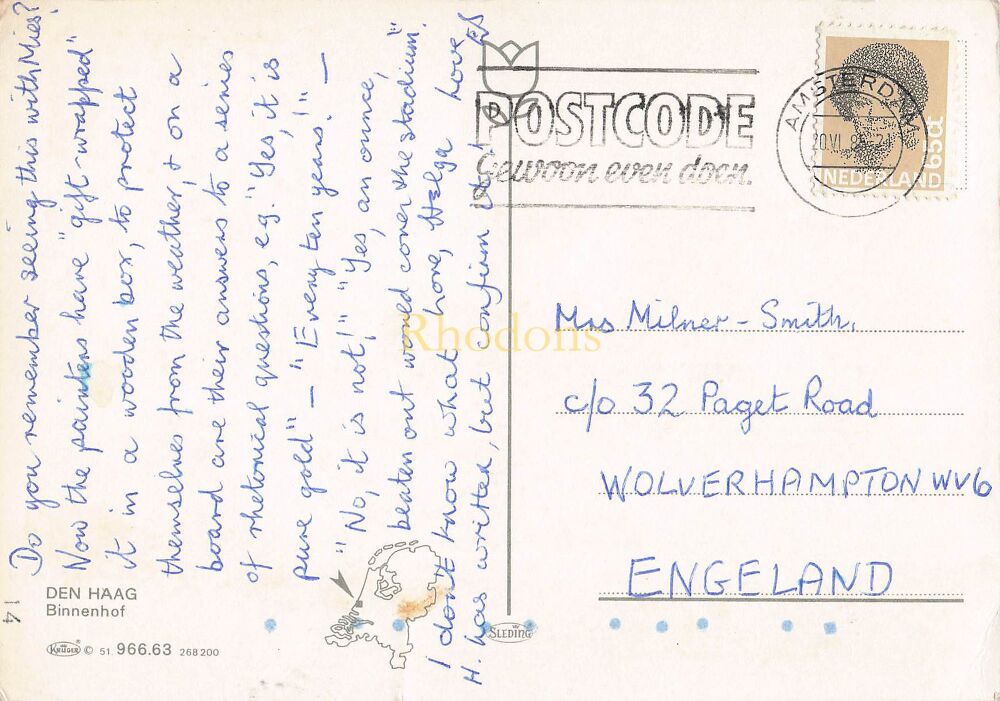 Do you remember seeing this with Mies?
Now the painters have "gift-wrapped"
it in a wooden box, to protect
themselves from the weather, & on a
board are their answers to a series
of rhetorical questions, e.g. "Yes, it is
pure gold" — "Every ten years!" —
"No, it is not!" "Yes, an ounce,
beaten out would cover the stadium".
I don't know what more, Helga love
H. has written, but confirm
DEN HAAG
Binnenhof
KRUGER © 51 966.63 268200
14
SLEDING
POSTCODE
Gewoon even doen.
AMSTERDAM
20.VI.8
65ct
NEDERLAND
Mrs Milner-Smith,
c/o 32 Paget Road
WOLVERHAMPTON WV6
ENGELAND
Rhodons